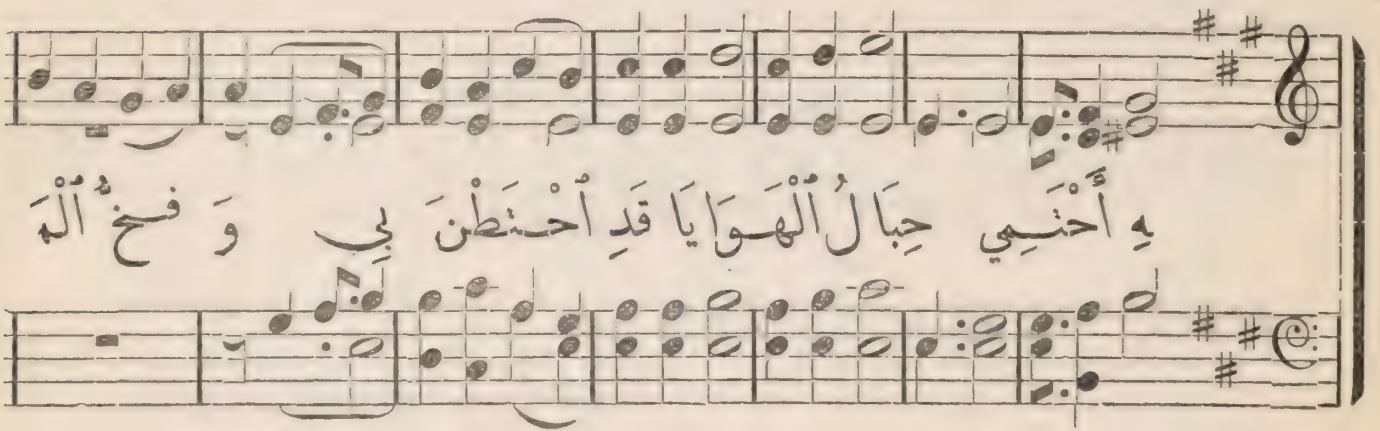 هِ أَحْتَمِي حِبَا لُ ٱلْهَوَا يَا قَدِ ٱحْتَطْنَ بِي وَ فَخُّ ٱلْهَ